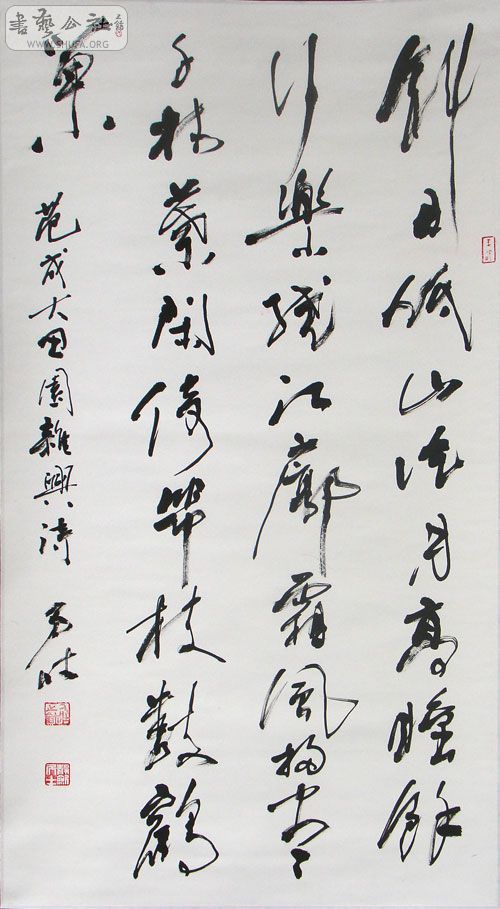 書藝公社
WWW.SHUFA.ORG
斜日低山片月高睡餘
行樂繞江郊霜風搗盡
千林葉閑倚筇枝數鸛
巢
范成大田園雜興詩